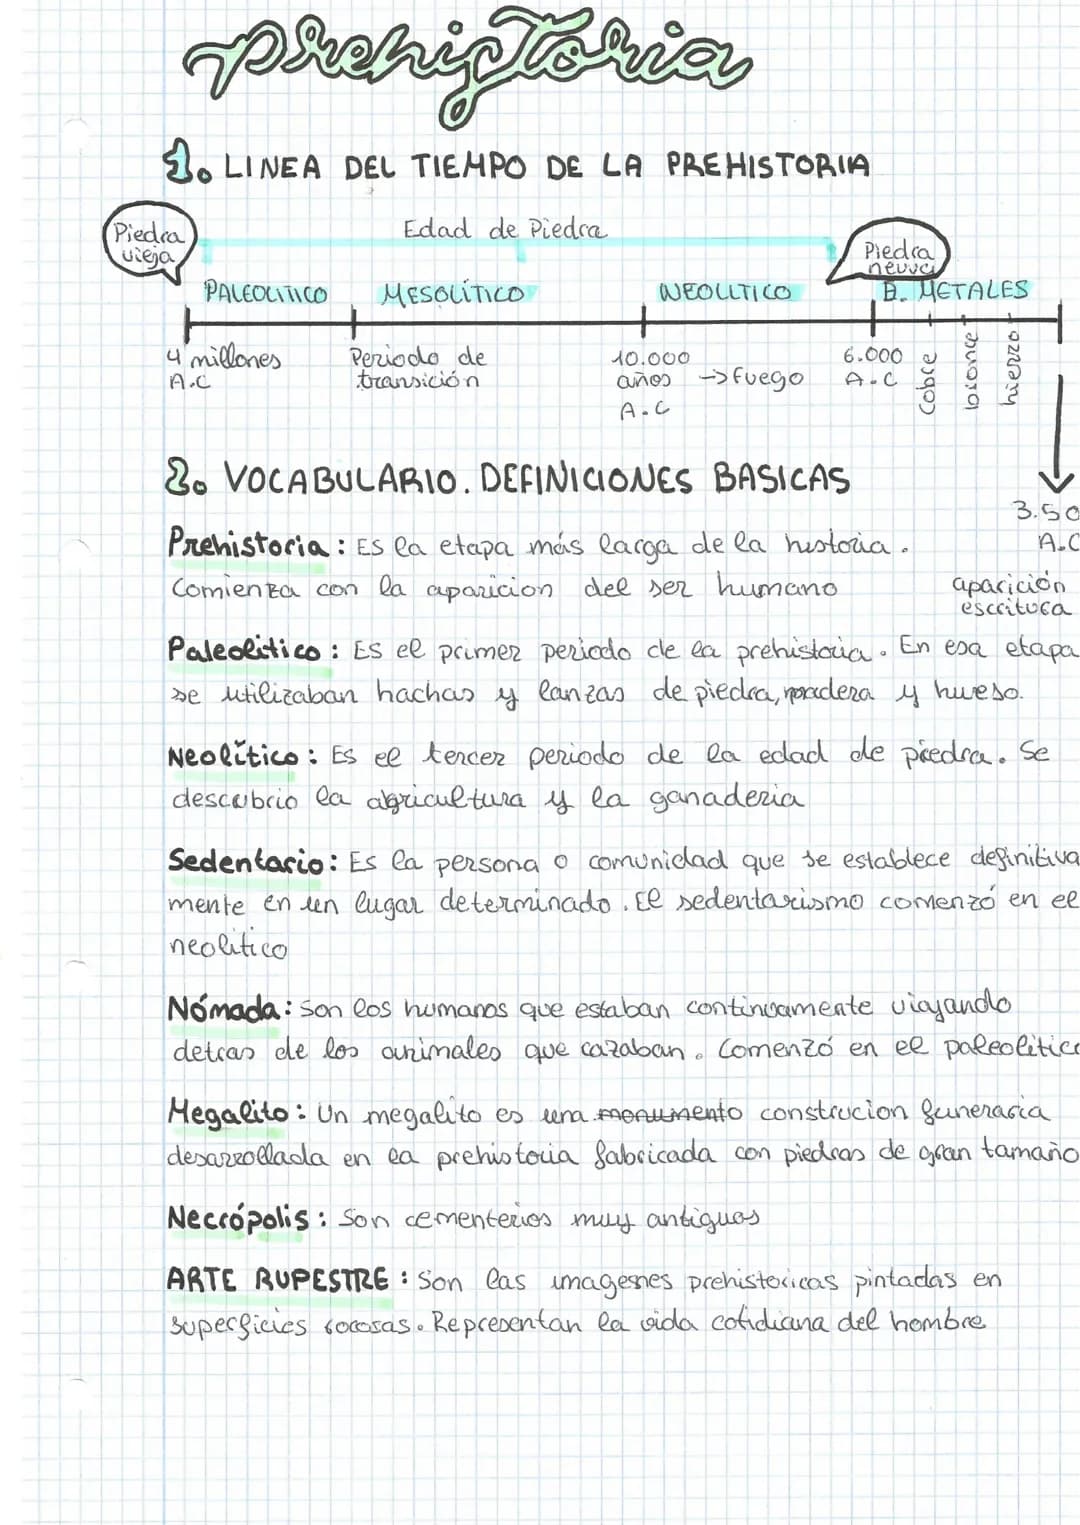 prehistoria
1. LINEA DEL TIEMPO DE LA PREHISTORIA
Piedra vieja
Edad de Piedra
Piedra neuva
PALEOLITICO MESOLÍTICO NEOLITICO B. METALES
4 millones A.C
Periodo de transición
10.000 años A.C
→ fuego
6.000 A.C
cobre
bronce
hierro
3.50
A.C
aparición
escritura
2. VOCABULARIO. DEFINICIONES BASICAS
Prehistoria: Es la etapa más larga de la historia.
Comienza con la aparicion del ser humano
Paleolitico: Es el primer periodo de la prehistoria. En esa etapa
se utilizaban hachas y lanzas de piedra, madera y hueso.
Neolítico: Es el tercer periodo de la edad de piedra. Se
descubrio la agricultura y la ganaderia
Sedentario: Es la persona o comunidad que se establece definitiva
mente en un lugar determinado. El sedentarismo comenzó en el
neolitico
Nómada: Son los humanos que estaban continuamente viajando
detras de los animales que cazaban. Comenzó en el paleolitico
Megalito: Un megalito es una monumento construcion funeraria
desarrollada en la prehistoria fabricada con piedras de gran tamaño
Necrópolis: Son cementerios muy antiguos
ARTE RUPESTRE: Son las imagesnes prehistoricas pintadas en
superficies rocosas. Representan la vida cotidiana del hombre